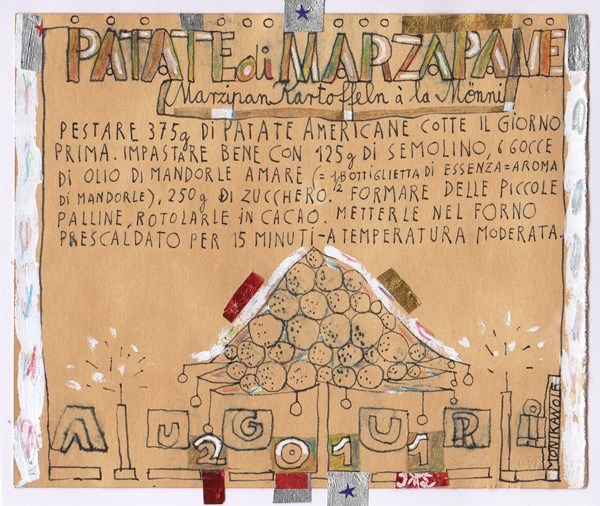 PATATE di MARZAPANE
(Marzipan Kartoffeln à la Mönni)
PESTARE 375g DI PATATE AMERICANE COTTE IL GIORNO
PRIMA. IMPASTARE BENE CON 125g DI SEMOLINO, 6 GOCCE
DI OLIO DI MANDORLE AMARE (=1/2 BOTTIGLIETTA DI ESSENZA=AROMA
DI MANDORLE), 250g DI ZUCCHERO. FORMARE DELLE PICCOLE
PALLINE, ROTOLARLE IN CACAO. METTERLE NEL FORNO
PRESCALDATO PER 15 MINUTI-A TEMPERATURA MODERATA.
AUGURI
2011